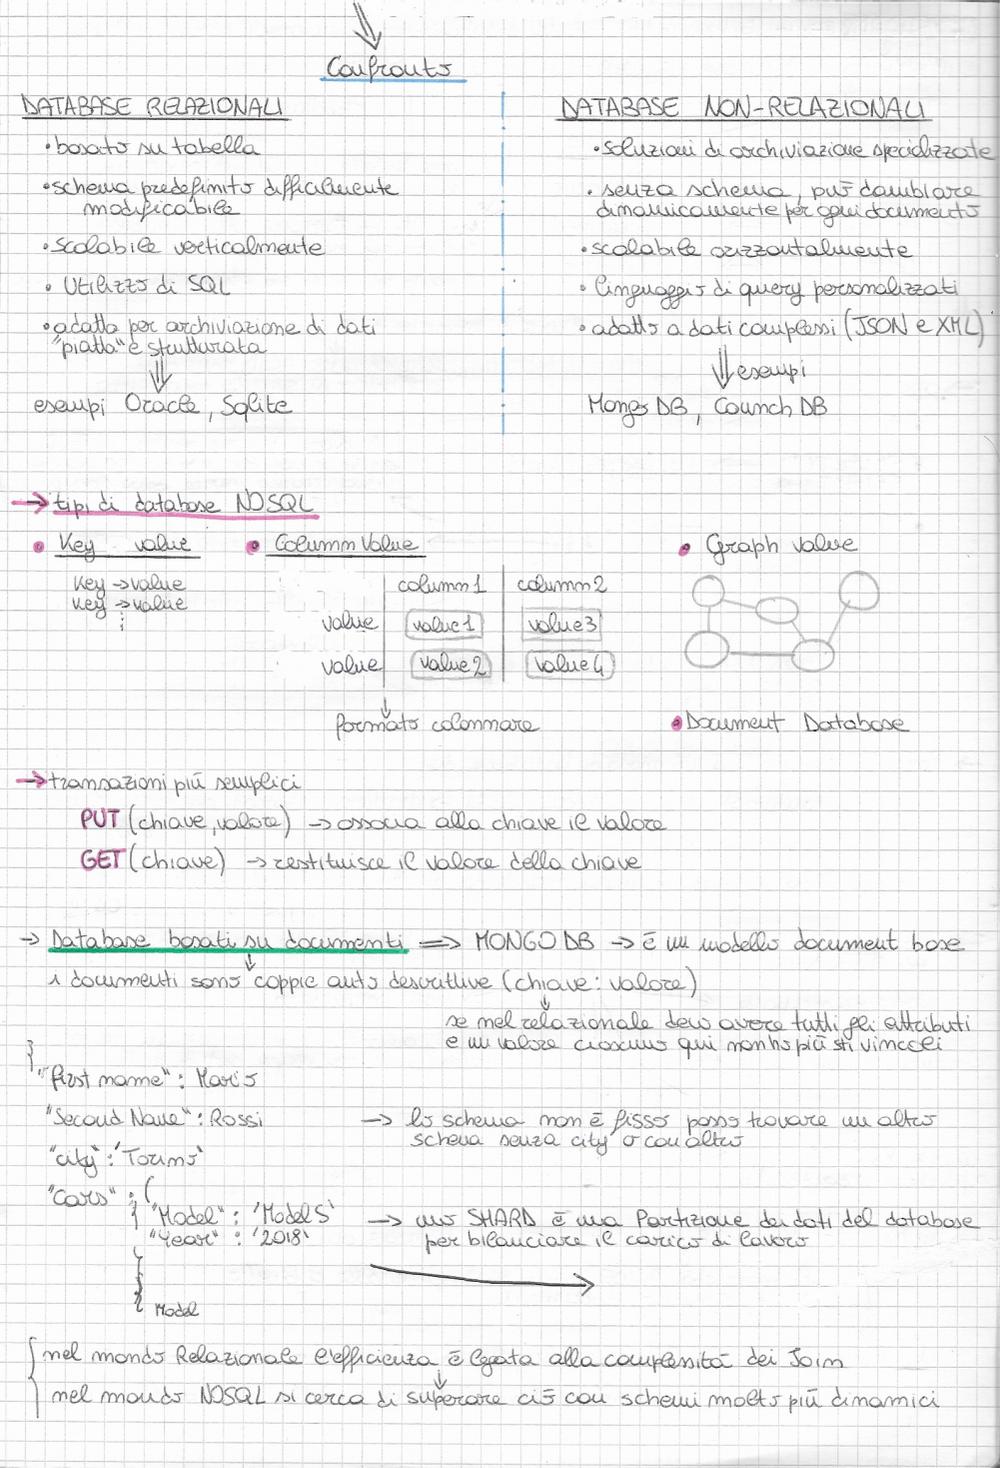 Confronto
DATABASE RELAZIONALI
• basato su tabella
• schema predefinito difficilmente
modificabile
• scalabile verticalmente
• Utilizzo di SQL
• adatta per archiviazione di dati
"piatta" e strutturata
esempi Oracle, Sqlite
DATABASE NON-RELAZIONALI
• soluzioni di archiviazione specializzate
• senza schema, può cambiare
dinamicamente per ogni documento
• scalabile orizzontalmente
• linguaggio di query personalizzati
• adatto a dati complessi (JSON e XML)
esempi
Mongo DB, Counch DB
→ tipi di database NOSQL
• Key value
key → value
key → value
• Column Value
column1 column2
value value1 value3
value value2 value4
formato colonnare
• Graph value
• Document Database
→ transazioni più semplici
PUT (chiave, valore) → associa alla chiave il valore
GET (chiave) → restituisce il valore della chiave
→ Database basati su documenti => MONGO DB → è un modello document base
i documenti sono coppie auto descrittive (chiave: valore)
se nel relazionale devo avere tutti gli attributi
e un valore ciascuno qui non ho più sti vincoli
{
"first name": Mario
"Second Name": Rossi → lo schema non è fisso posso trovare un altro
schema senza city o con altro
"city": 'Torino'
"cars": (
{ "Model": 'Model S' → uno SHARD è una Partizione dei dati del database
"Year": '2018' per bilanciare il carico di lavoro
}
{ Model
nel mondo Relazionale l'efficienza è legata alla complessità dei Join
nel mondo NOSQL si cerca di superare ciò con schemi molto più dinamici